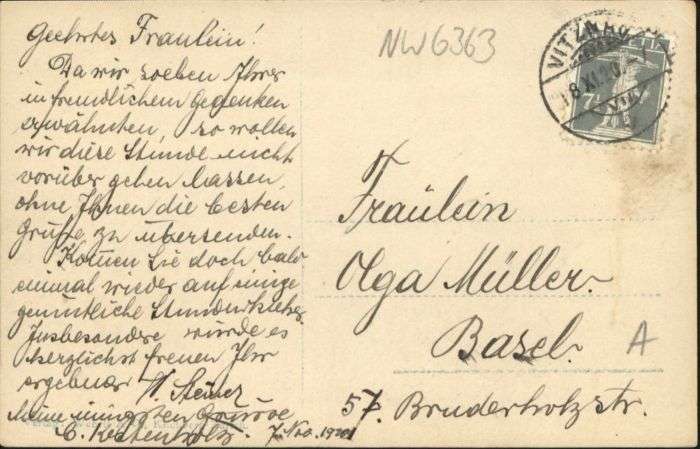 Geehrtes Fräulein!
Da wir soeben Ihrer
in freundlichem Gedenken
erwähnten, so wollen
wir diese Stunde nicht
vorüber gehen lassen,
ohne Ihnen die besten
Grüße zu übersenden.
Komen Sie doch bald
einmal wieder auf einige
gemütliche Stunden
Insbesondere würde es
herzlichst freuen Ihr
ergebener W. Steiner
C. Kestenholz. 7. Nov.
NW6363
VITZNAU
8 XI
7
Fräulein
Olga Müller.
Basel.
A
57. Bruderholzstr.